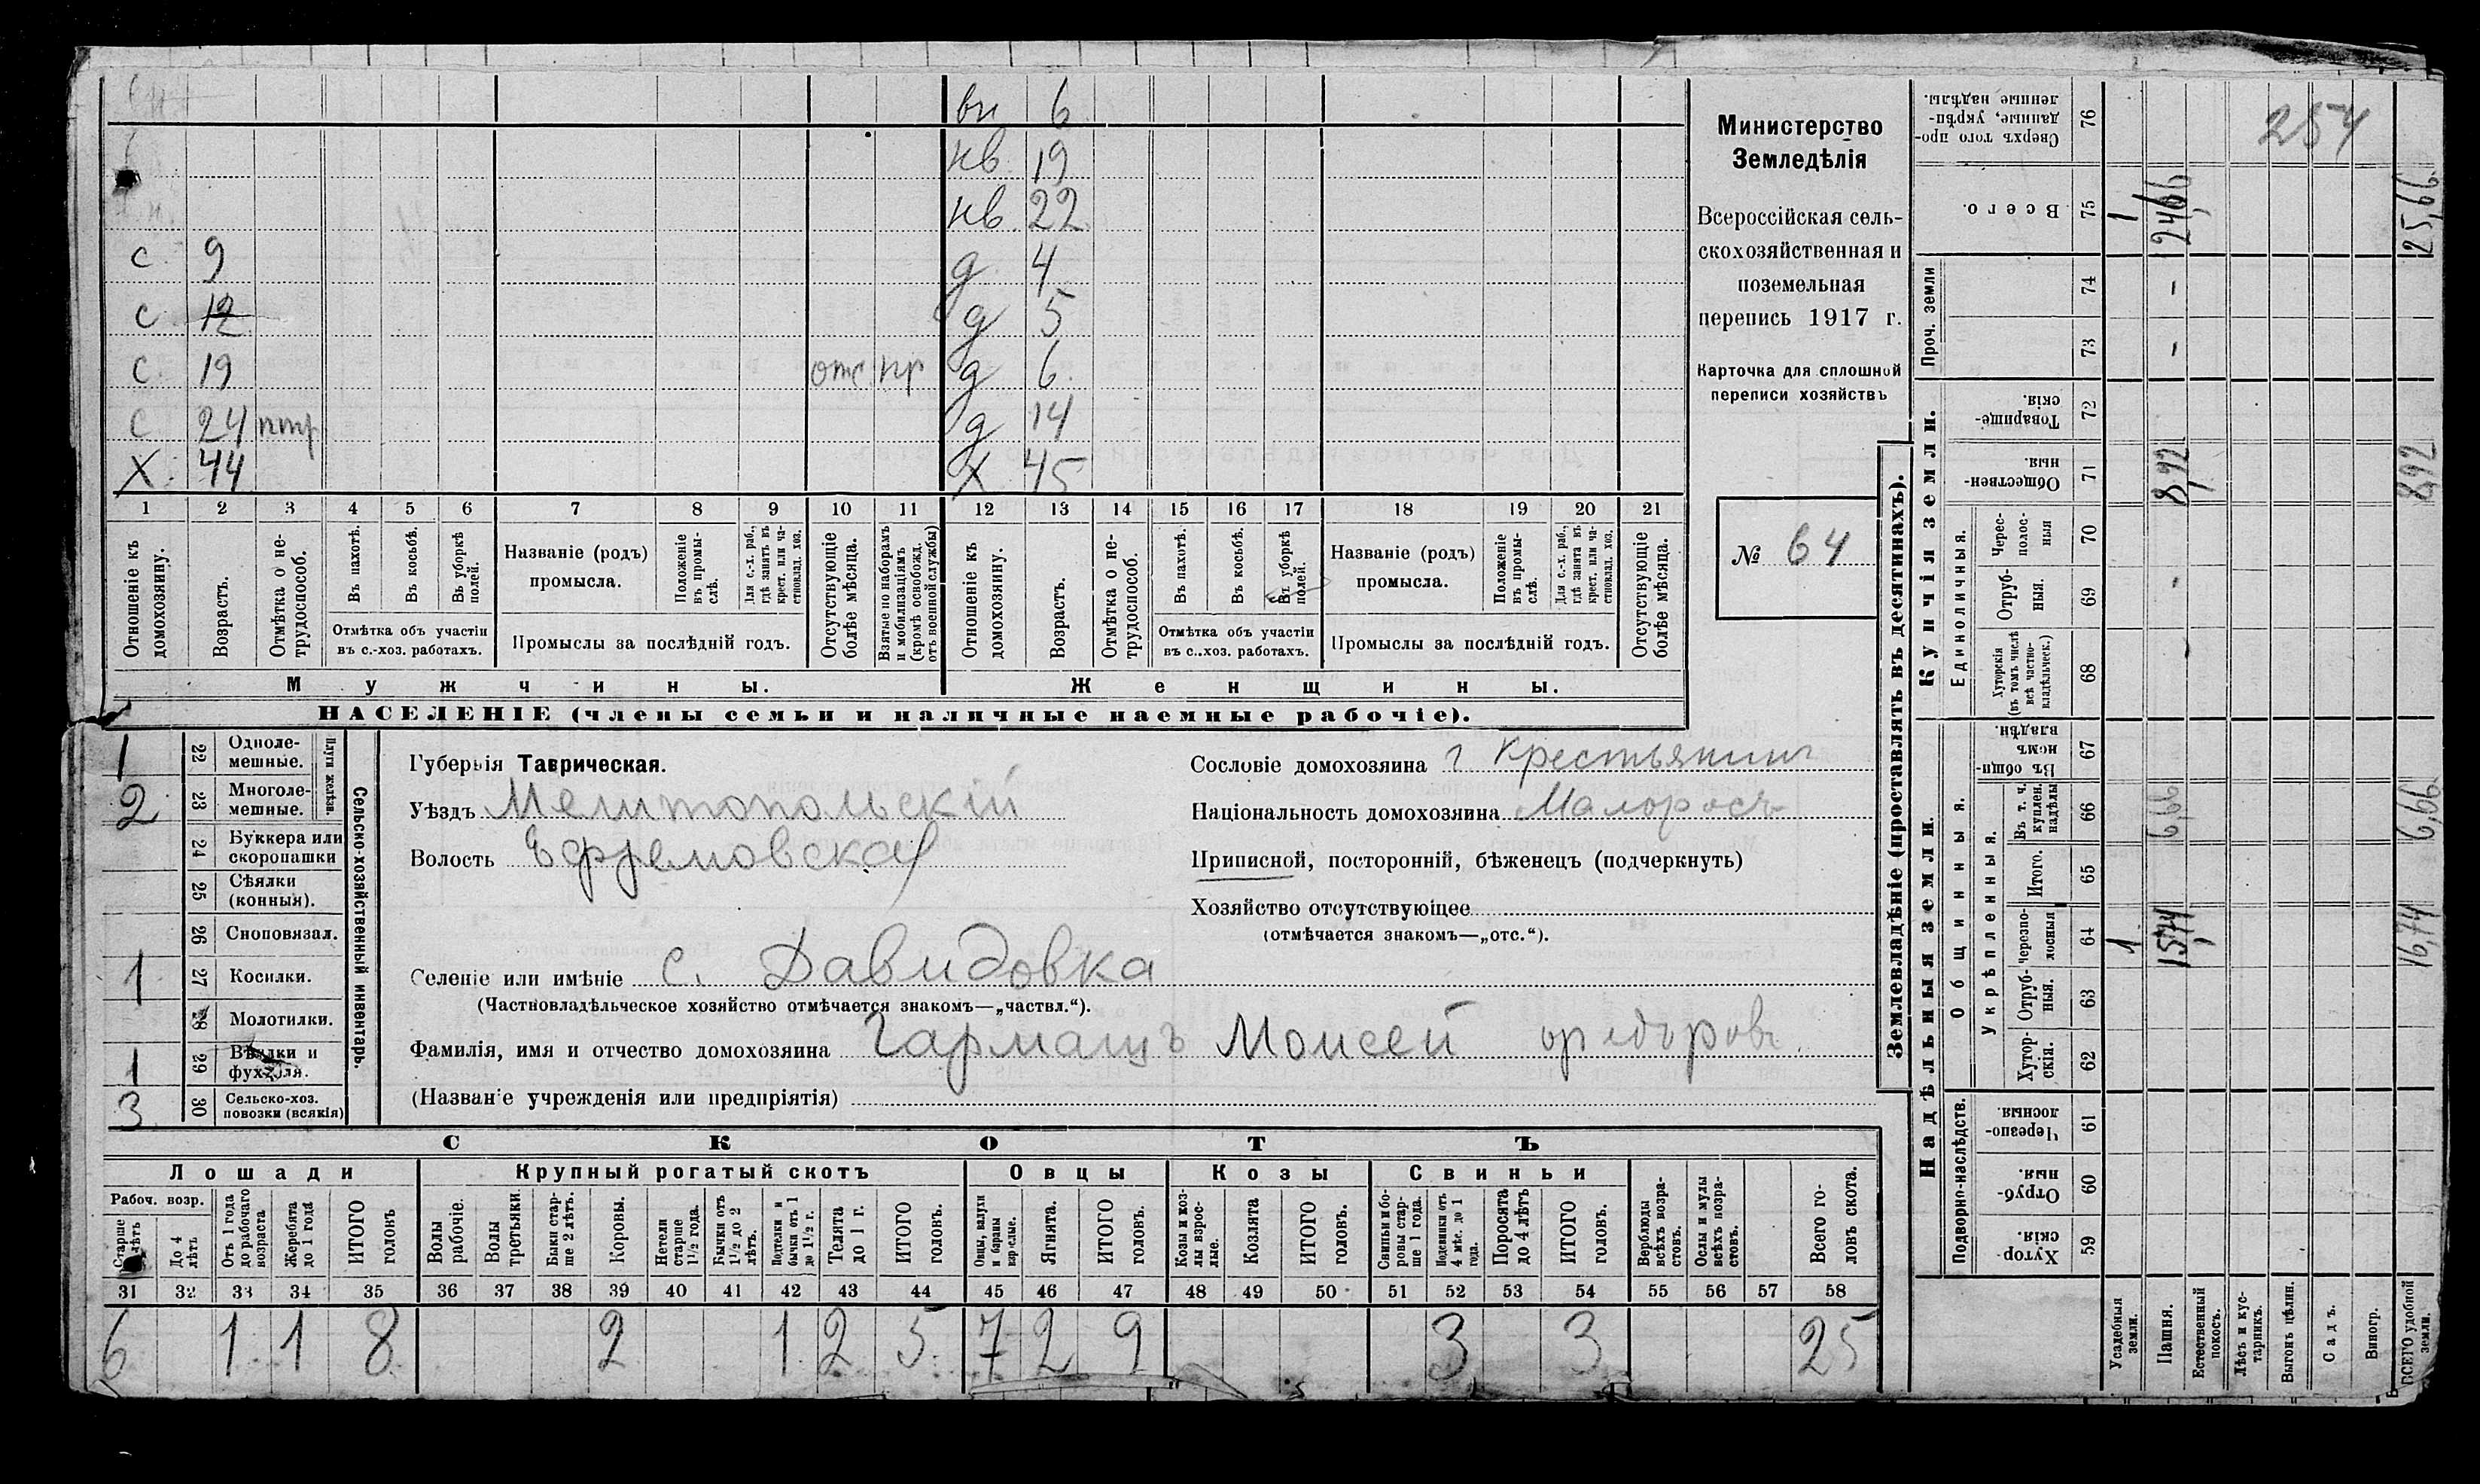 вн 6
нв 19
нв 22
с 9 д 4
с 12 д 5
с 19 отс пр д 6
с 24 нтр д 14
Х 44 Х 45
1 2 3 4 5 6 7 8 9 10 11 12 13 14 15 16 17 18 19 20 21
Отношеніе къ домохозяину.
Возрастъ.
Отмѣтка о не-
трудоспособ.
Въ пахотѣ.
Въ косьбѣ.
Въ уборкѣ
полей.
Отмѣтка объ участіи
въ с.-хоз. работахъ.
Названіе (родъ)
промысла.
Положеніе
въ промы-
слѣ.
Для с.-х. раб.,
гдѣ занятъ въ
крест. или ча-
стновлад. хоз.
Промыслы за послѣдній годъ.
Отсутствующіе
болѣе мѣсяца.
Взятые по наборамъ
и мобилизаціямъ
(кромѣ освобожд.
отъ военной службы)
Отношеніе къ
домохозяину.
Возрастъ.
Отмѣтка о не-
трудоспособ.
Въ пахотѣ.
Въ косьбѣ.
Въ уборкѣ
полей.
Отмѣтка объ участіи
въ с..хоз. работахъ.
Названіе (родъ)
промысла.
Положеніе
въ промы-
слѣ.
Для с.-х. раб.,
гдѣ занятъ въ
крест. или ча-
стновлад. хоз.
Промыслы за послѣдній годъ.
Отсутствующіе
болѣе мѣсяца.
Мужчины. Женщины.
НАСЕЛЕНІЕ (члены семьи и наличные наемные рабочіе).
Министерство
Земледѣлія
Всероссійская сель-
скохозяйственная и
поземельная
перепись 1917 г.
Карточка для сплошной
переписи хозяйствъ
№ 64
1 22 Одноле-
мешные.
2 23 Многоле-
мешные.
Плуги желѣзн.
24 Буккера или
скоропашки
25 Сѣялки
(конныя).
26 Сноповязал.
1 27 Косилки.
28 Молотилки.
1 29 Вѣялки и
фухтеля.
3 30 Сельско-хоз.
повозки (всякія)
Сельско-хозяйственный инвентарь.
Губернія Таврическая.
Уѣздъ Мелитопольскій
Волость Ефремовская
Селеніе или имѣніе с. Давидовка
(Частновладѣльческое хозяйство отмѣчается знакомъ—„частвл.“).
Фамилія, имя и отчество домохозяина Гармашъ Моисей Федоров
(Названіе учрежденія или предпріятія)
Сословіе домохозяина г крестьянин
Національность домохозяина Малоросъ
Приписной, посторонній, бѣженецъ (подчеркнуть)
Хозяйство отсутствующее
(отмѣчается знакомъ—„отс.“).
СКОТЪ
Лошади Крупный рогатый скотъ Овцы Козы Свиньи
Рабоч. возр.
Старше
лѣтъ
До 4
лѣтъ
Отъ 1 года
до рабочаго
возраста
Жеребята
до 1 года
ИТОГО
головъ
Волы
рабочіе.
Волы
третьяки.
Быки стар-
ше 2 лѣтъ.
Коровы.
Нетели
старше
1½ года.
Бычки отъ
1½ до 2
лѣтъ.
Подтелки и
бычки отъ 1
до 1½ г.
Телята
до 1 г.
ИТОГО
головъ.
Овцы, валухи
и бараны
взрослые.
Ягнята.
ИТОГО
головъ.
Козы и коз-
лы взрос-
лые.
Козлята
ИТОГО
головъ.
Свиньи и бо-
ровы стар-
ше 1 года.
Подсвинки отъ
4 мѣс. до 1
года.
Поросята
до 4 лѣтъ
ИТОГО
головъ.
Верблюды
всѣхъ возра-
стовъ.
Ослы и мулы
всѣхъ возра-
стовъ.
Всего го-
ловъ скота.
31 32 33 34 35 36 37 38 39 40 41 42 43 44 45 46 47 48 49 50 51 52 53 54 55 56 57 58
6 1 1 8 2 1 2 5 7 2 9 3 3 25
Землевладѣніе (проставлять въ десятинахъ).
Надѣльныя земли. Купчія земли. Проч. земли
Подворно-наслѣдств.
Общинныя.
Укрѣпленныя.
Единоличныя.
Сверхъ того про-
данные, укрѣп-
ленные надѣлы. 76 254
Всего. 75 1 24,66 25,66
74 -
73 -
Товарище-
скія. 72
Обществен-
ныя. 71 8,92 8,92
Черес-
полос-
ныя 70
Отруб-
ныя. 69 -
Хуторскія
(въ томъ числѣ
всѣ частно-
владѣльческ.) 68
Въ общин-
номъ
владѣн. 67
Въ т. ч.
куплен.
надѣлы 66 6,66 6,66
Итого. 65
черезпо-
лосныя 64 1 15,74 16,74
Отруб-
ныя. 63
Хутор-
скія. 62
Черезпо-
лосныя. 61
Отруб-
ныя. 60
Хутор-
скія. 59
Усадебныя
земли.
Пашня.
Естественный
покосъ.
Лѣсъ и кус-
тарникъ.
Выгонъ цѣлин.
Садъ.
Виногр.
ВСЕГО удобной
земли.